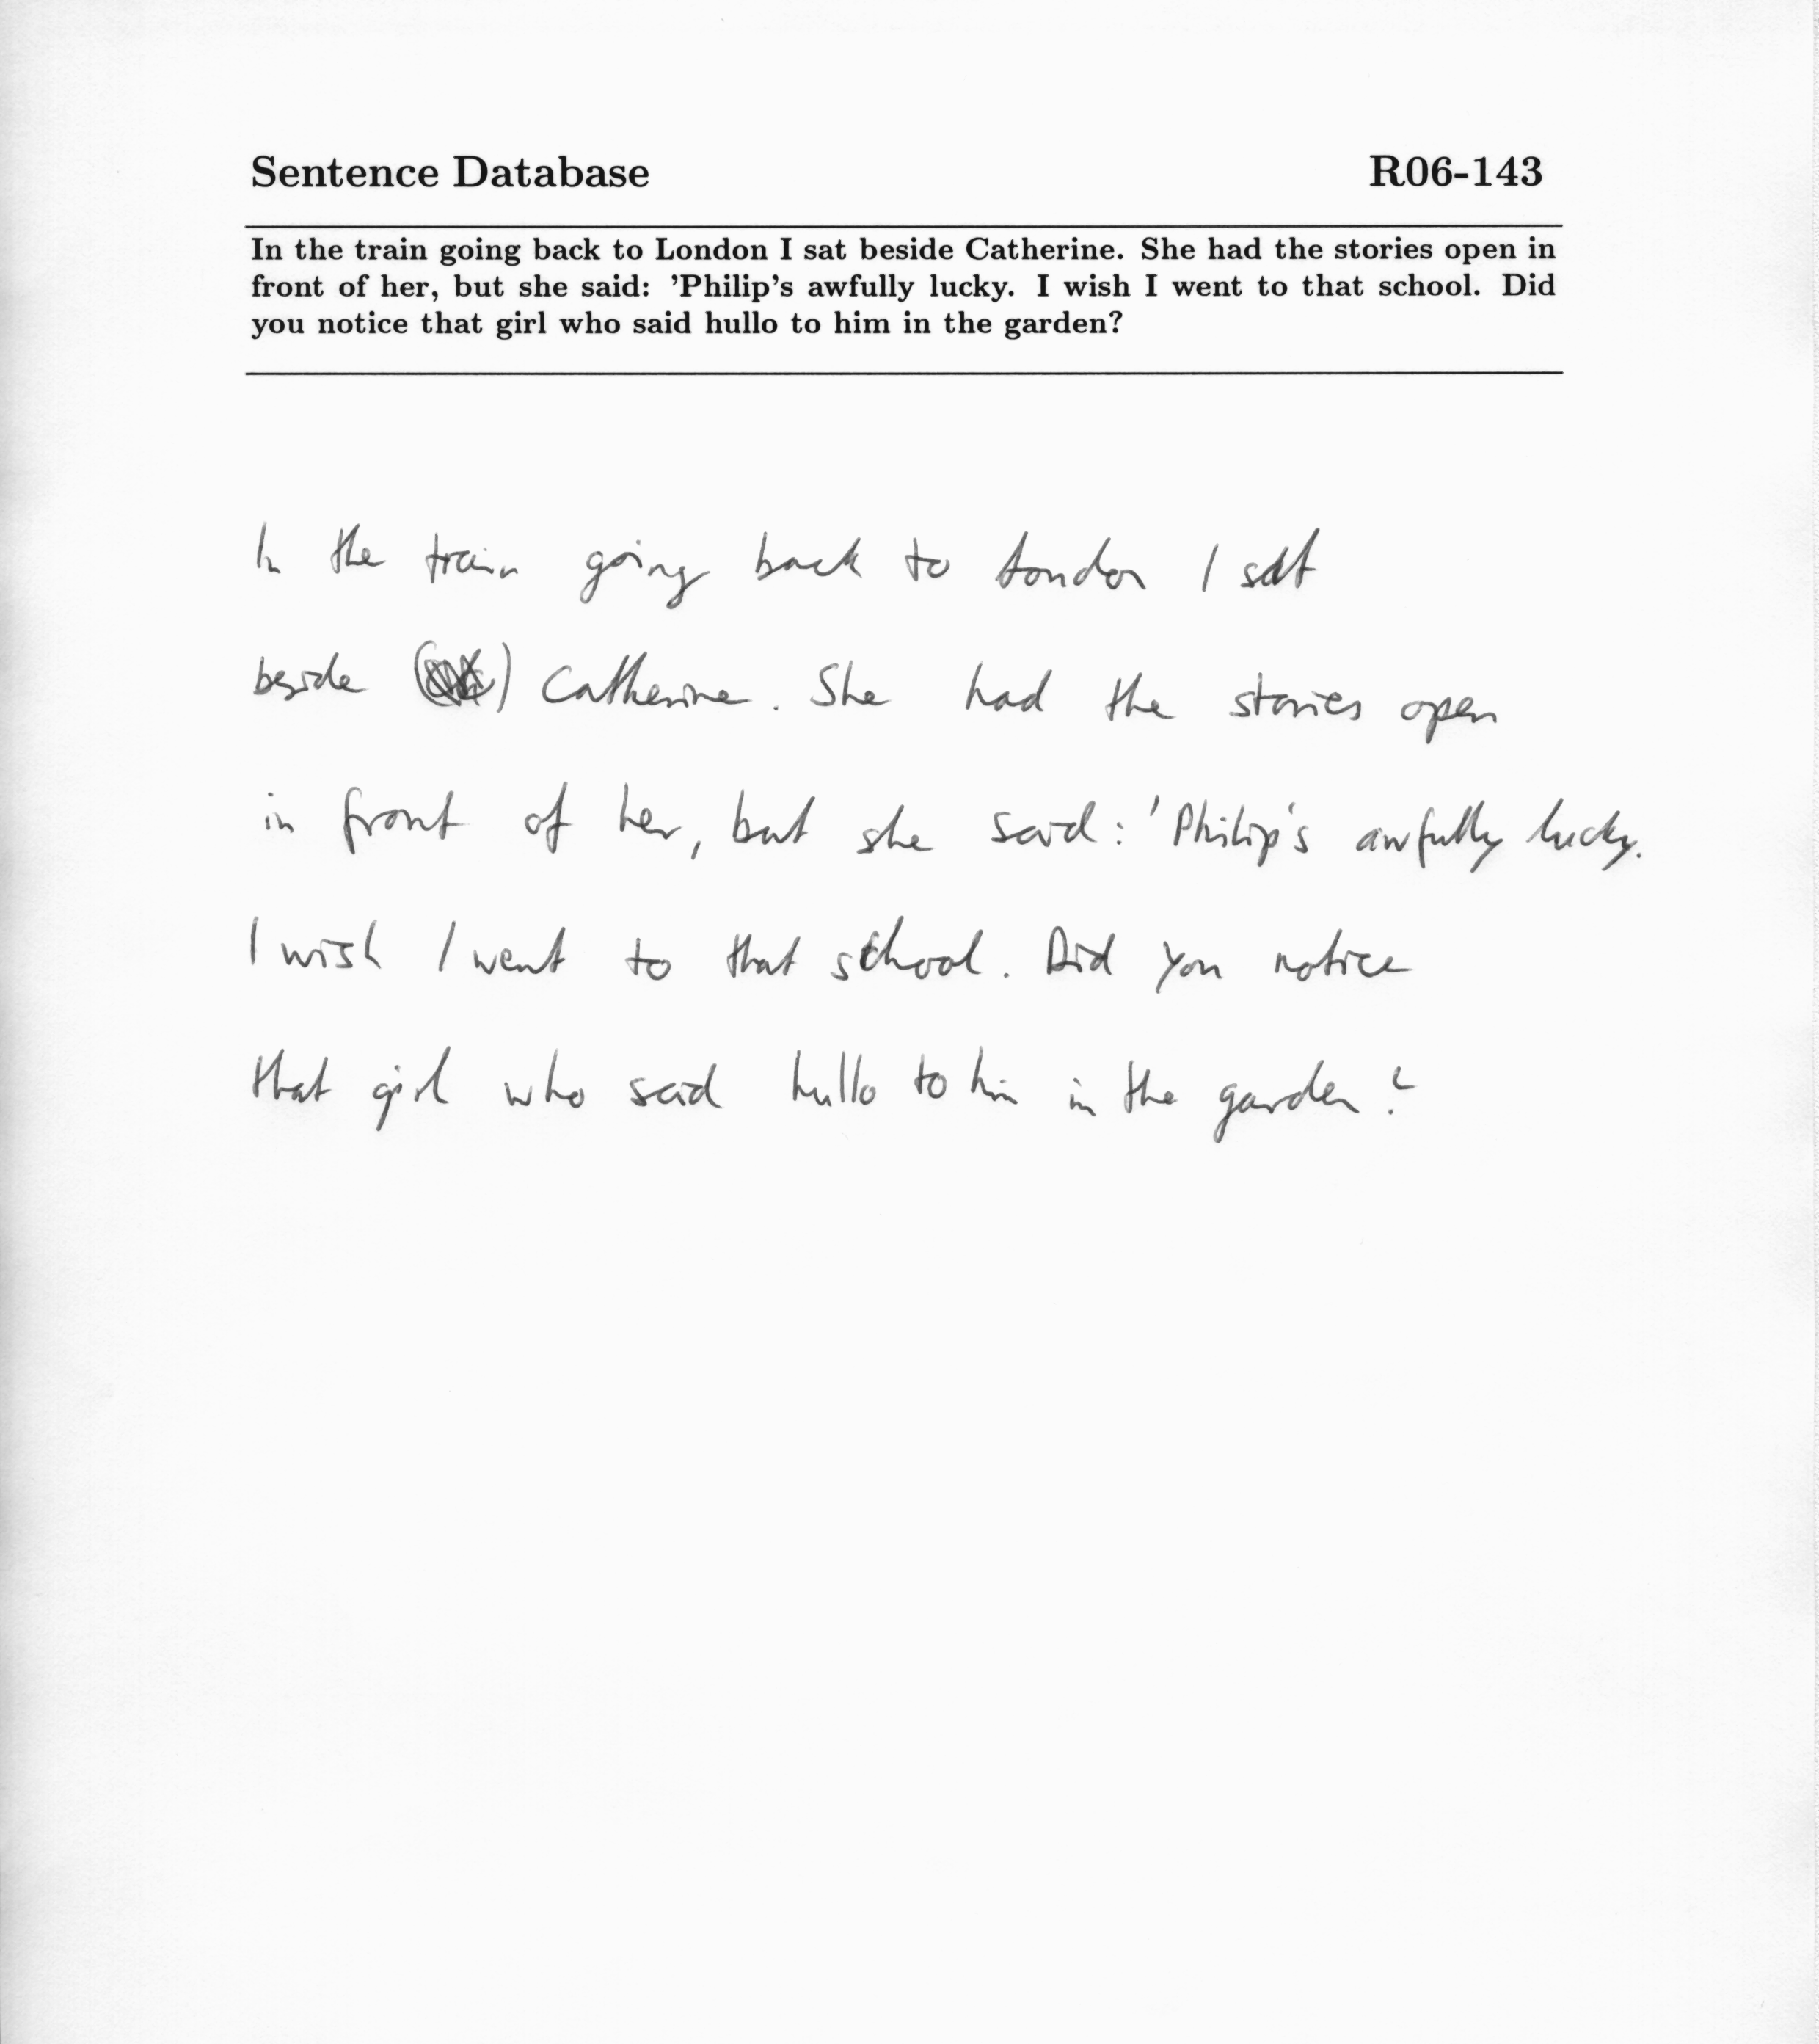 Sentence Database R06-143
In the train going back to London I sat beside Catherine. She had the stories open in
front of her, but she said: 'Philip's awfully lucky. I wish I went to that school. Did
you notice that girl who said hullo to him in the garden?
In the train going back to London I sat
beside () Catherine. She had the stories open
in front of her, but she said: 'Philip's awfully lucky.
I wish I went to that school. Did you notice
that girl who said hullo to him in the garden?